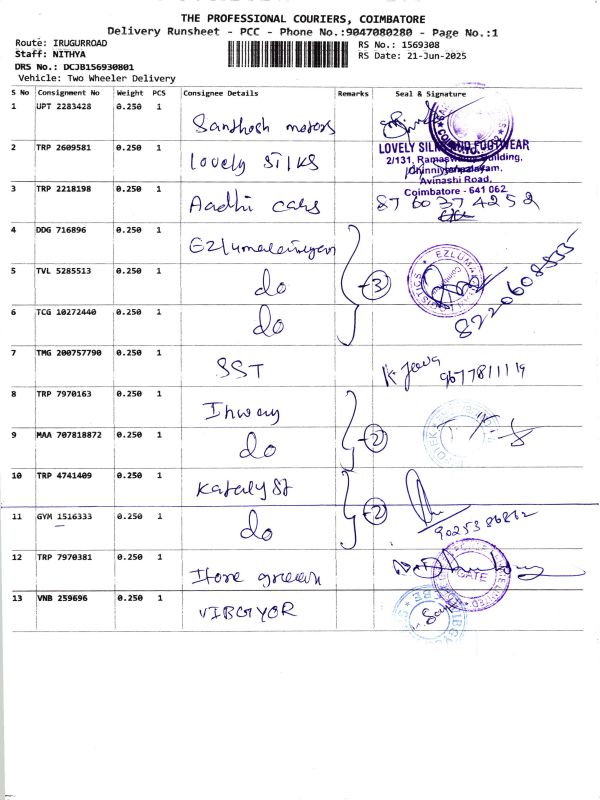 THE PROFESSIONAL COURIERS, COIMBATORE
Delivery Runsheet - PCC - Phone No.:9047080280 - Page No.:1
Route: IRUGURROAD
RS No.: 1569308
Staff: NITHYA
RS Date: 21-Jun-2025
DRS No.: DCJB156930801
Vehicle: Two Wheeler Delivery
S No Consignment No Weight PCS Consignee Details Remarks Seal & Signature
1 UPT 2283428 0.250 1 Santhosh motors
2 TRP 2609581 0.250 1 Lovely Silks
LOVELY SILKS AND FOOTWEAR
2/131, Ramaswamy Building,
Chinniyampalayam,
Avinashi Road,
Coimbatore - 641 062
3 TRP 2218198 0.250 1 Aadhi cars 8760374252
4 DDG 716896 0.250 1
5 TVL 5285513 0.250 1 do -3 8220608555
6 TCG 10272440 0.250 1 do
7 TMG 200757790 0.250 1 SST K. Jeeva 9677811119
8 TRP 7970163 0.250 1
9 MAA 707818872 0.250 1 do -2
10 TRP 4741409 0.250 1
11 GYM 1516333 0.250 1 do -2
12 TRP 7970381 0.250 1 GATE
13 VNB 259696 0.250 1 VIBGYOR